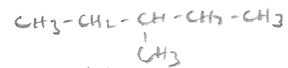 CH3-CH2-CH-CH2-CH3
CH3